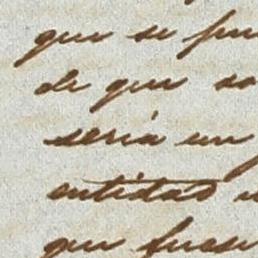 que se
de que
seria un
entidad
que fuese